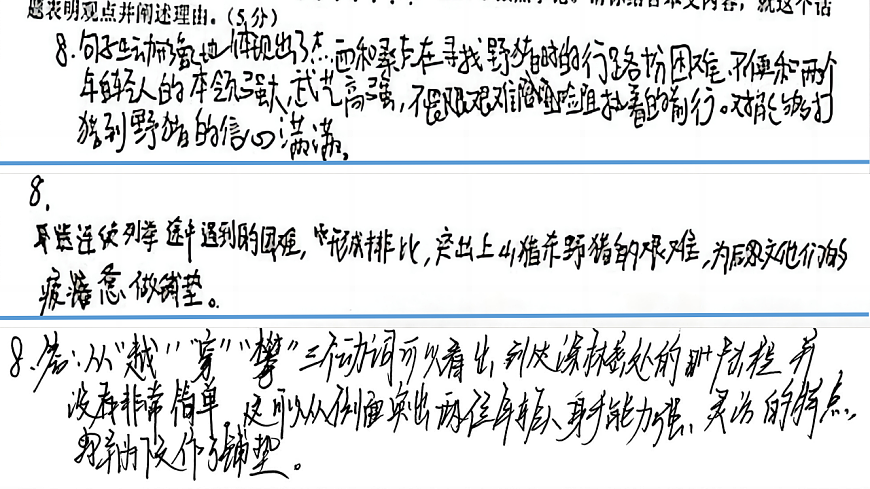 题表明观点并阐述理由。(5分)
8.句子生动形象地体现出了杰西和桑卓在寻找野猪时的行路的困难,不便和两个
年轻人的本领强大,武艺高强,不畏艰难险阻执着的前行。对能够打
猎到野猪的信心满满。
8.
连续列举途中遇到的困难,形成排比,突出上山猎杀野猪的艰难,为后文他们的
疲惫做铺垫。
8.答:从“越”“穿”“攀”三个动词可以看出,到达深林密处的过程并
没有非常简单,这可以从侧面突出两位年轻人身手能力强、灵活的特点,
为下文作了铺垫。